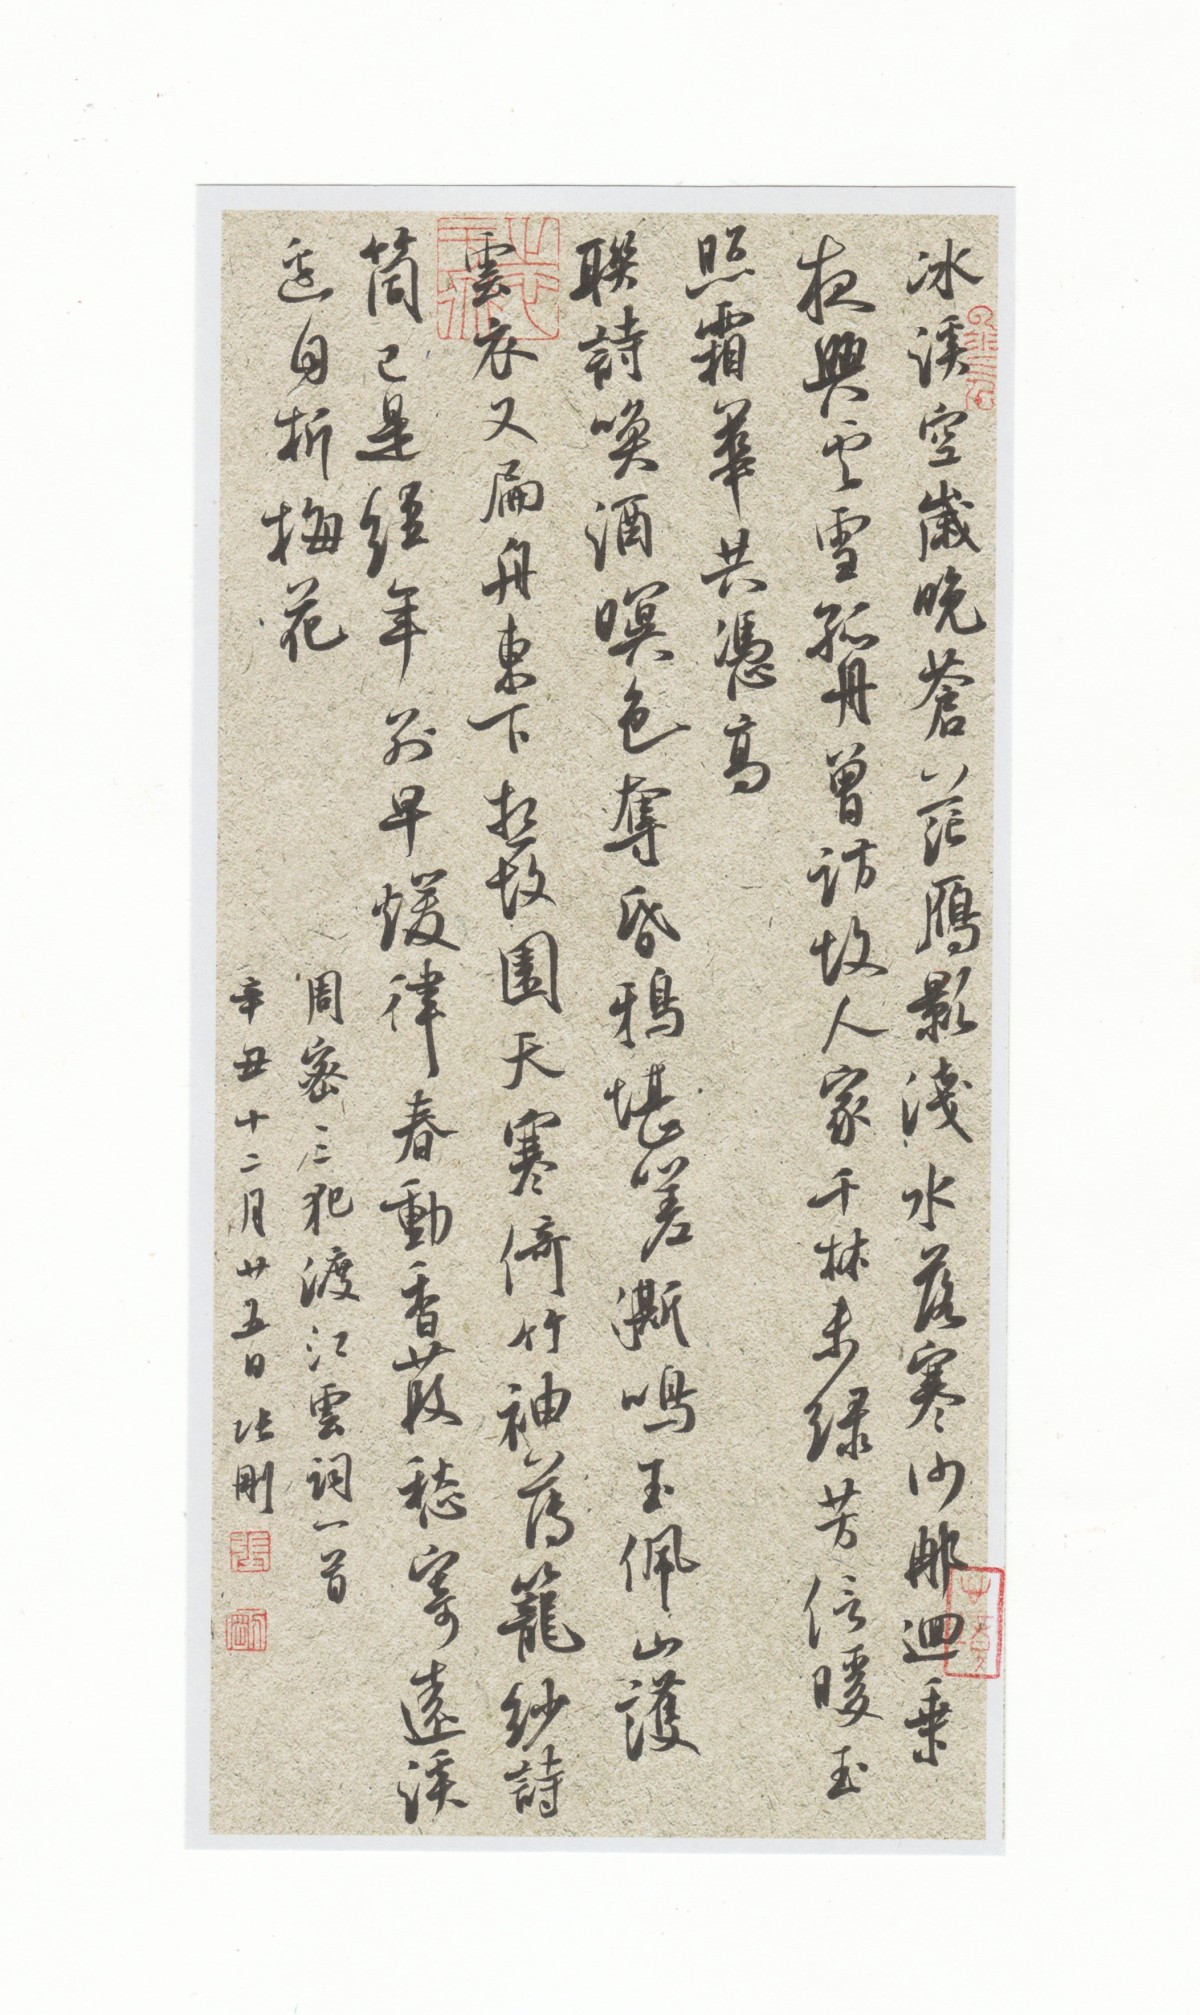 冰溪空歲晚蒼茫鴈影淺水落寒沙那迴乘
夜興雲雪孤舟曾訪故人家千林未綠芳信暖玉
照霜華共憑高
聯詩喚酒暝色奪昏鴉堪嗟澌鳴玉佩山護
雲衣又扁舟東下想故園天寒倚竹袖薄籠紗詩
筒已是經年別早煖律春動香葭愁寄遠溪
邊自折梅花
周密三犯渡江雲詞一首
辛丑十二月廿五日張剛
張
剛